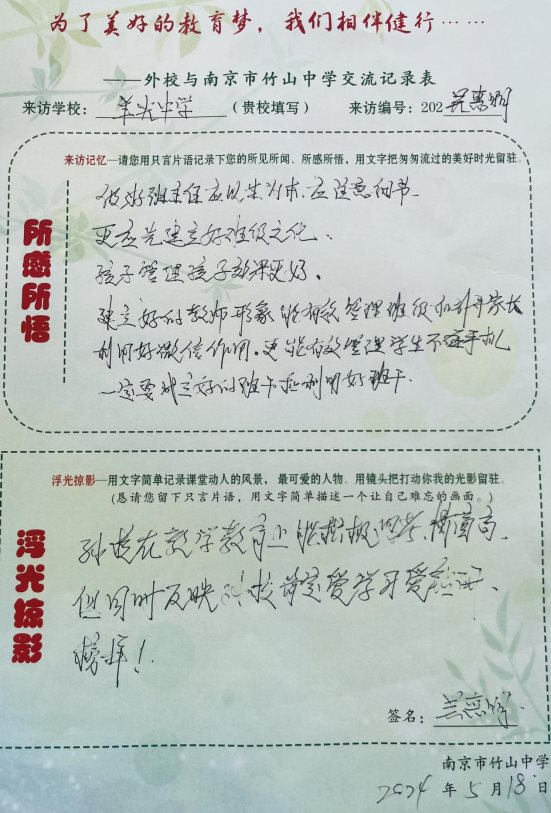 为了美好的教育梦，我们相伴健行……
——外校与南京市竹山中学交流记录表
来访学校：羊光中学（贵校填写） 来访编号：202
所感所悟
来访记忆—请您用只言片语记录下您的所见所闻、所感所悟，用文字把匆匆流过的美好时光留驻。
做好班主任应以生为本，应注意细节。
更应先建立好班级文化、
孩子管理孩子效果更好。
建立好的教师形象能有效管理班级和外平家长
利用好微信作用。更能有效管理学生不玩手机
一定要建立好的班干和利用好班干.
浮光掠影
浮光掠影—用文字简单记录课堂动人的风景，最可爱的人物。用镜头把打动你我的光影留驻。
（恳请您留下只言片语，用文字简单描述一个让自己难忘的画面。）
孙校在教学教育上能积极思考、
但同时反映孙校肯定爱学习爱
榜样！
签名：
南京市竹山中学
2024年5月18日